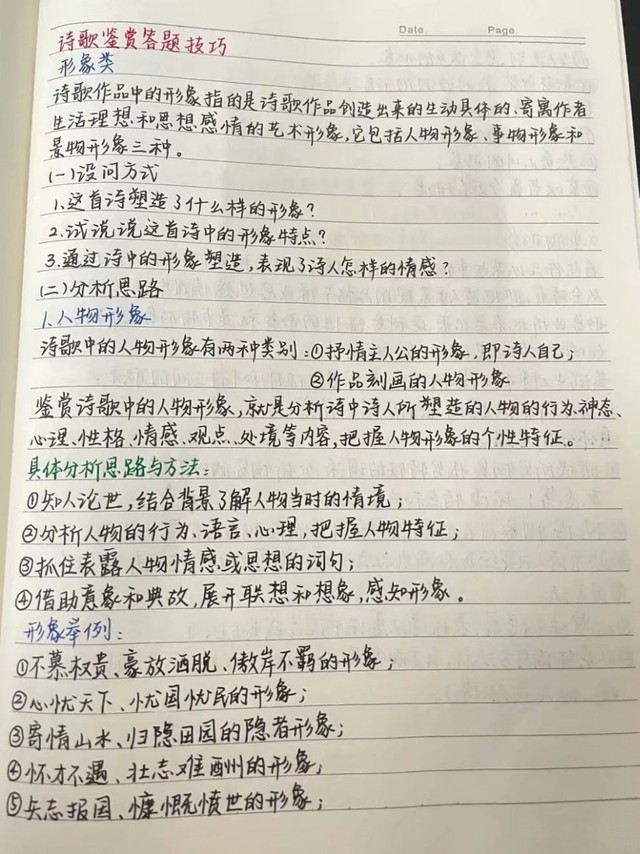 Date.　Page.
诗歌鉴赏答题技巧
形象类
诗歌作品中的形象指的是诗歌作品创造出来的生动具体的、寄寓作者
生活理想和思想感情的艺术形象,它包括人物形象、事物形象和
景物形象三种。
(一)设问方式
1.这首诗塑造了什么样的形象?
2.试说说这首诗中的形象特点?
3.通过诗中的形象塑造,表现了诗人怎样的情感?
(二)分析思路
1.人物形象
诗歌中的人物形象有两种类别:①抒情主人公的形象,即诗人自己;
②作品刻画的人物形象
鉴赏诗歌中的人物形象,就是分析诗中诗人所塑造的人物的行为、神态、
心理、性格、情感、观点、处境等内容,把握人物形象的个性特征。
具体分析思路与方法:
①知人论世,结合背景了解人物当时的情境;
②分析人物的行为、语言、心理,把握人物特征;
③抓住表露人物情感或思想的词句;
④借助意象和典故,展开联想和想象,感知形象。
形象举例:
①不慕权贵、豪放洒脱、傲岸不羁的形象;
②心忧天下、忧国忧民的形象;
③寄情山水、归隐田园的隐者形象;
④怀才不遇、壮志难酬的形象;
⑤矢志报国、慷慨愤世的形象;